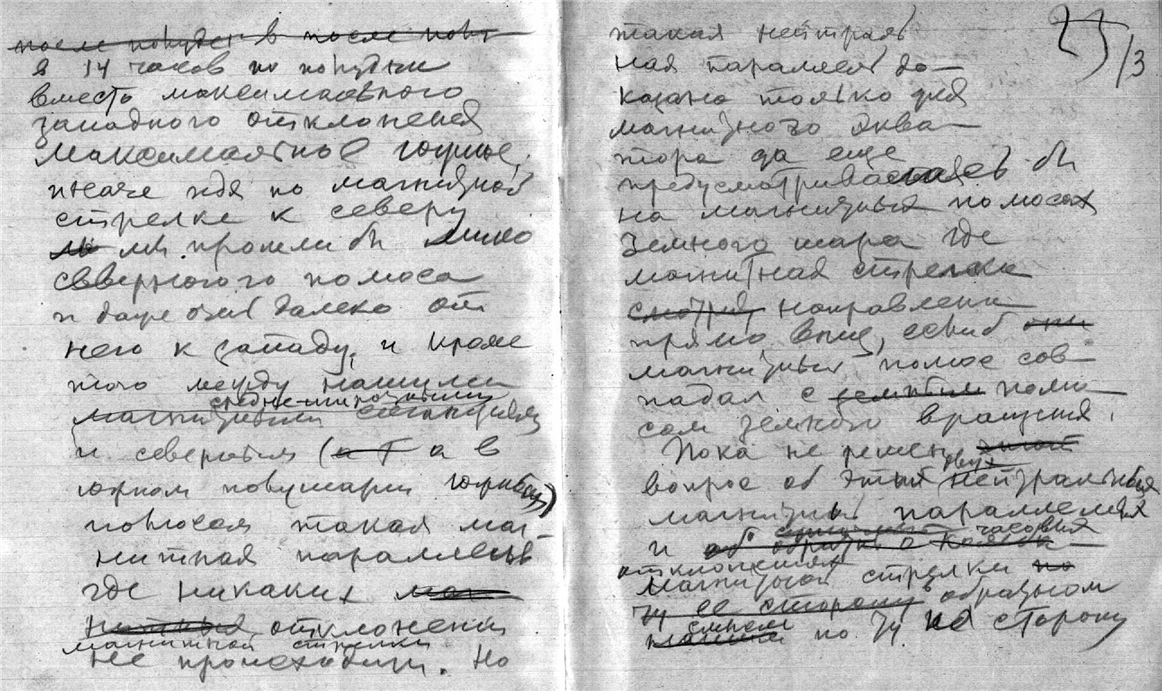 после полудня в после полу
в 14 часов по полудни
вместо максимального
западного отклонения
максимальное южное,
иначе идя по магнитной
стрелке к северу
мы прошли бы мимо
северного полюса
и даже очень далеко от
него к западу, и кроме
того между нашими
средне-широтными
магнитными станциями
и северным (а в
южном полушарии южным)
полюсом такая маг-
нитная параллель
где никаких
отклонений
магнитной стрелки
не происходит. Но
23/3
такая нейтраль
ная параллель до-
казана только для
магнитного эква-
тора да еще
предусматривалась бы
на магнитных полюсах
земного шара где
магнитная стрелка
смотрит направлена
прямо вниз, если б они
магнитный полюс сов-
падал с земным полю-
сом земного вращения.
Пока не решен
двух
вопрос об этих нейтральных
магнитных параллелях
и
часовых
отклонениях
магнитной стрелки по
ту ее сторону образом
смысле
по ту сторону